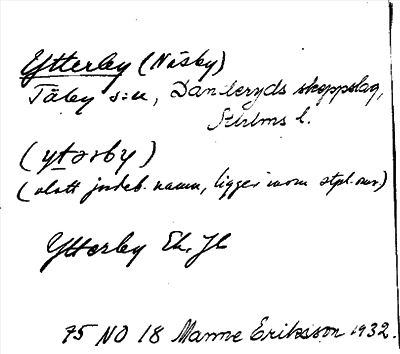 Ytterby (Näsby)
Täby s:n, Danderyds skeppslag,
Sthlms l.
(ytərby)
(blott jordeb. namn, ligger inom stpl. omr)
Ytterby Ek. Jb
75 NO 18 Manne Eriksson 1932.